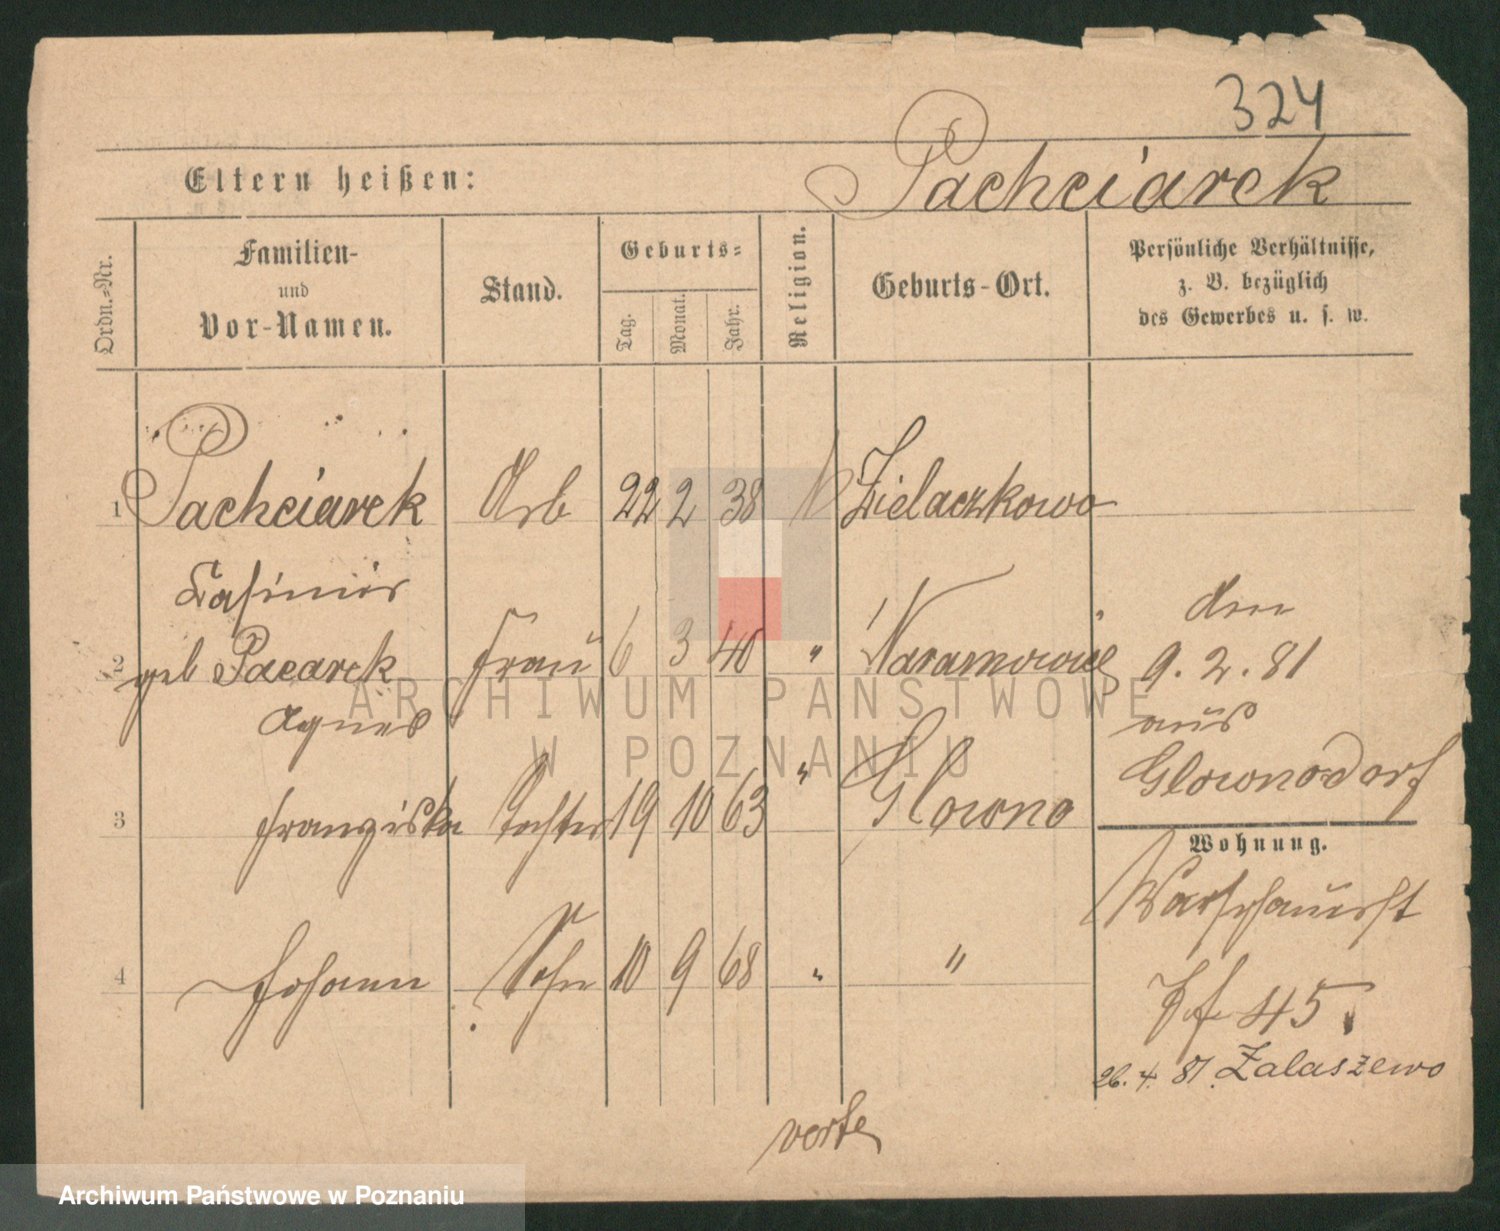 324
Eltern heißen: Pachciarek
Ordn.-Nr.
Familien-
und
Vor-Namen.
Stand.
Geburts-
Tag.
Monat.
Jahr.
Religion.
Geburts-Ort.
Persönliche Verhältnisse,
z. B. bezüglich
des Gewerbes u. s. w.
1 Pachciarek Arb 22 2 38 Zielaczkowo
Casimir
2 geb Pacarek Frau 6 3 40 "
Agnes
den
9. 2. 81
aus
Glownodorf
3 Franziska Tochter 19 10 63 " Glowno
Wohnung.
Warschauerst
4 Johann Sohn 10 9 68 " "
45
26. 4. 81. Zalaszewo
verte
ARCHIWUM PAŃSTWOWE
W POZNANIU
Archiwum Państwowe w Poznaniu